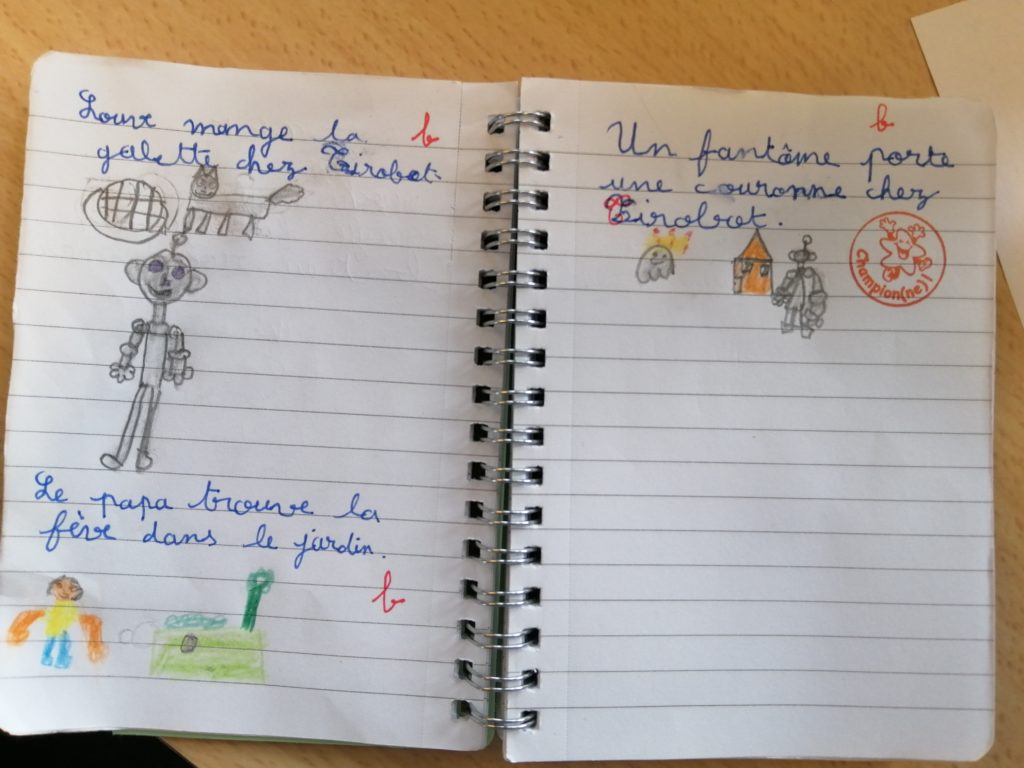 Loux mange la
b
galette chez Tirobot.
Le papa trouve la
fève dans le jardin.
b
b
Un fantôme porte
une couronne chez
Tirobot.
Champion(ne)!